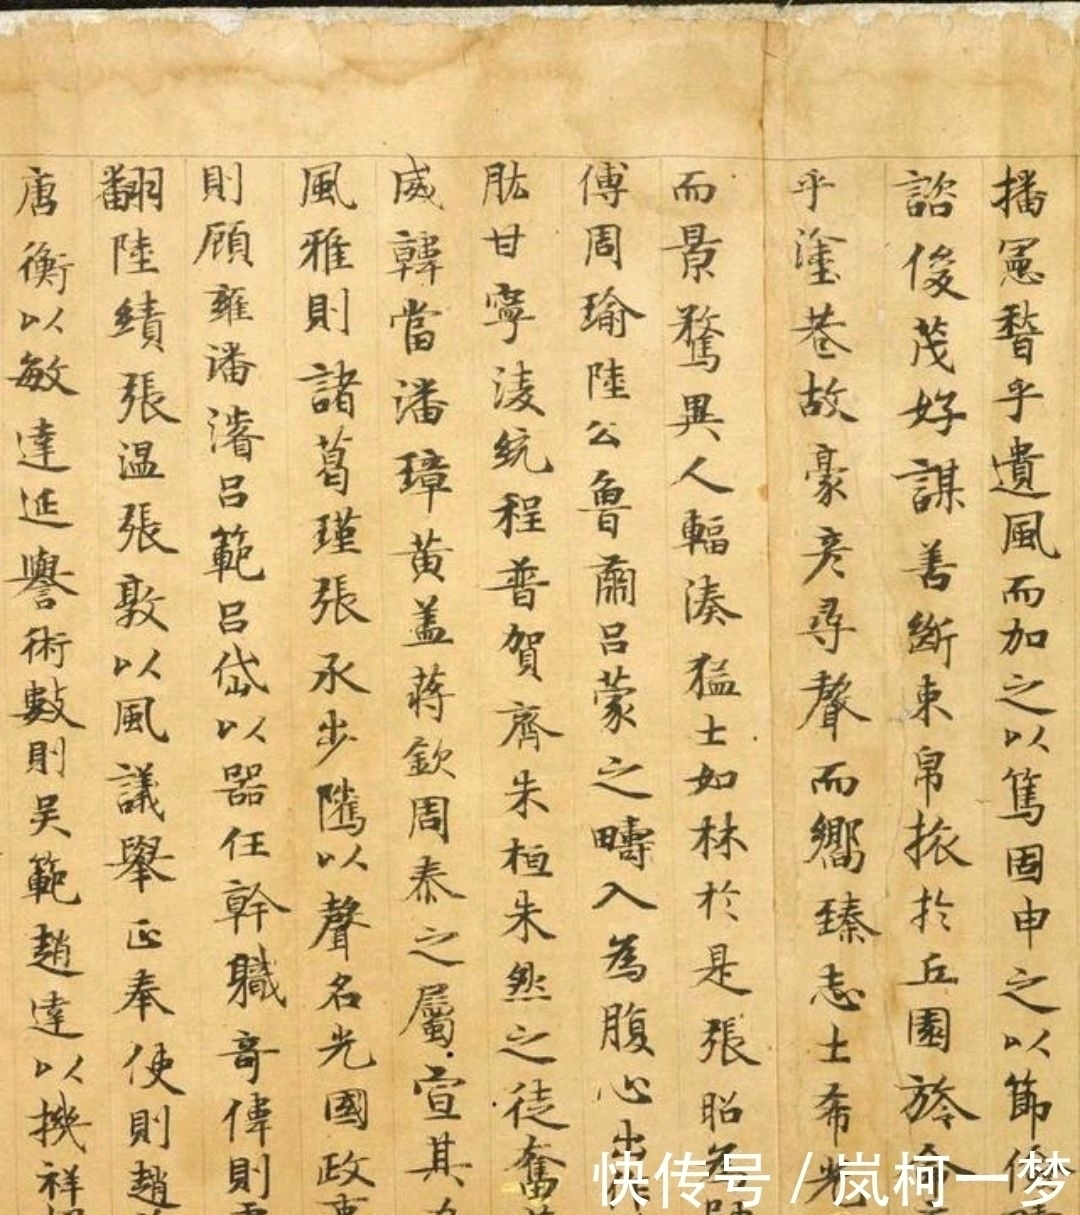 播憲稽乎遺風而加之以篤固申之以節
諮俊茂好謀善斷束帛旅於丘園旌命
乎塗巷故豪彦尋聲而嚮臻志士希光
而景騖異人輻湊猛士如林於是張昭為師
傅周瑜陸公魯肅吕蒙之疇入為腹心出
肱甘寧淩統程普賀齊朱桓朱然之徒奮
威韓當潘璋黄盖蒋欽周泰之屬宣其
風雅則諸葛瑾張承步隲以聲名光國政
則顧雍潘濬吕範吕岱以器任幹職奇偉則
翻陸績張温張敦以風議舉正奉使則趙
唐衡以敏達延譽術數則吴範趙達以機祥
快传号/岚柯一梦